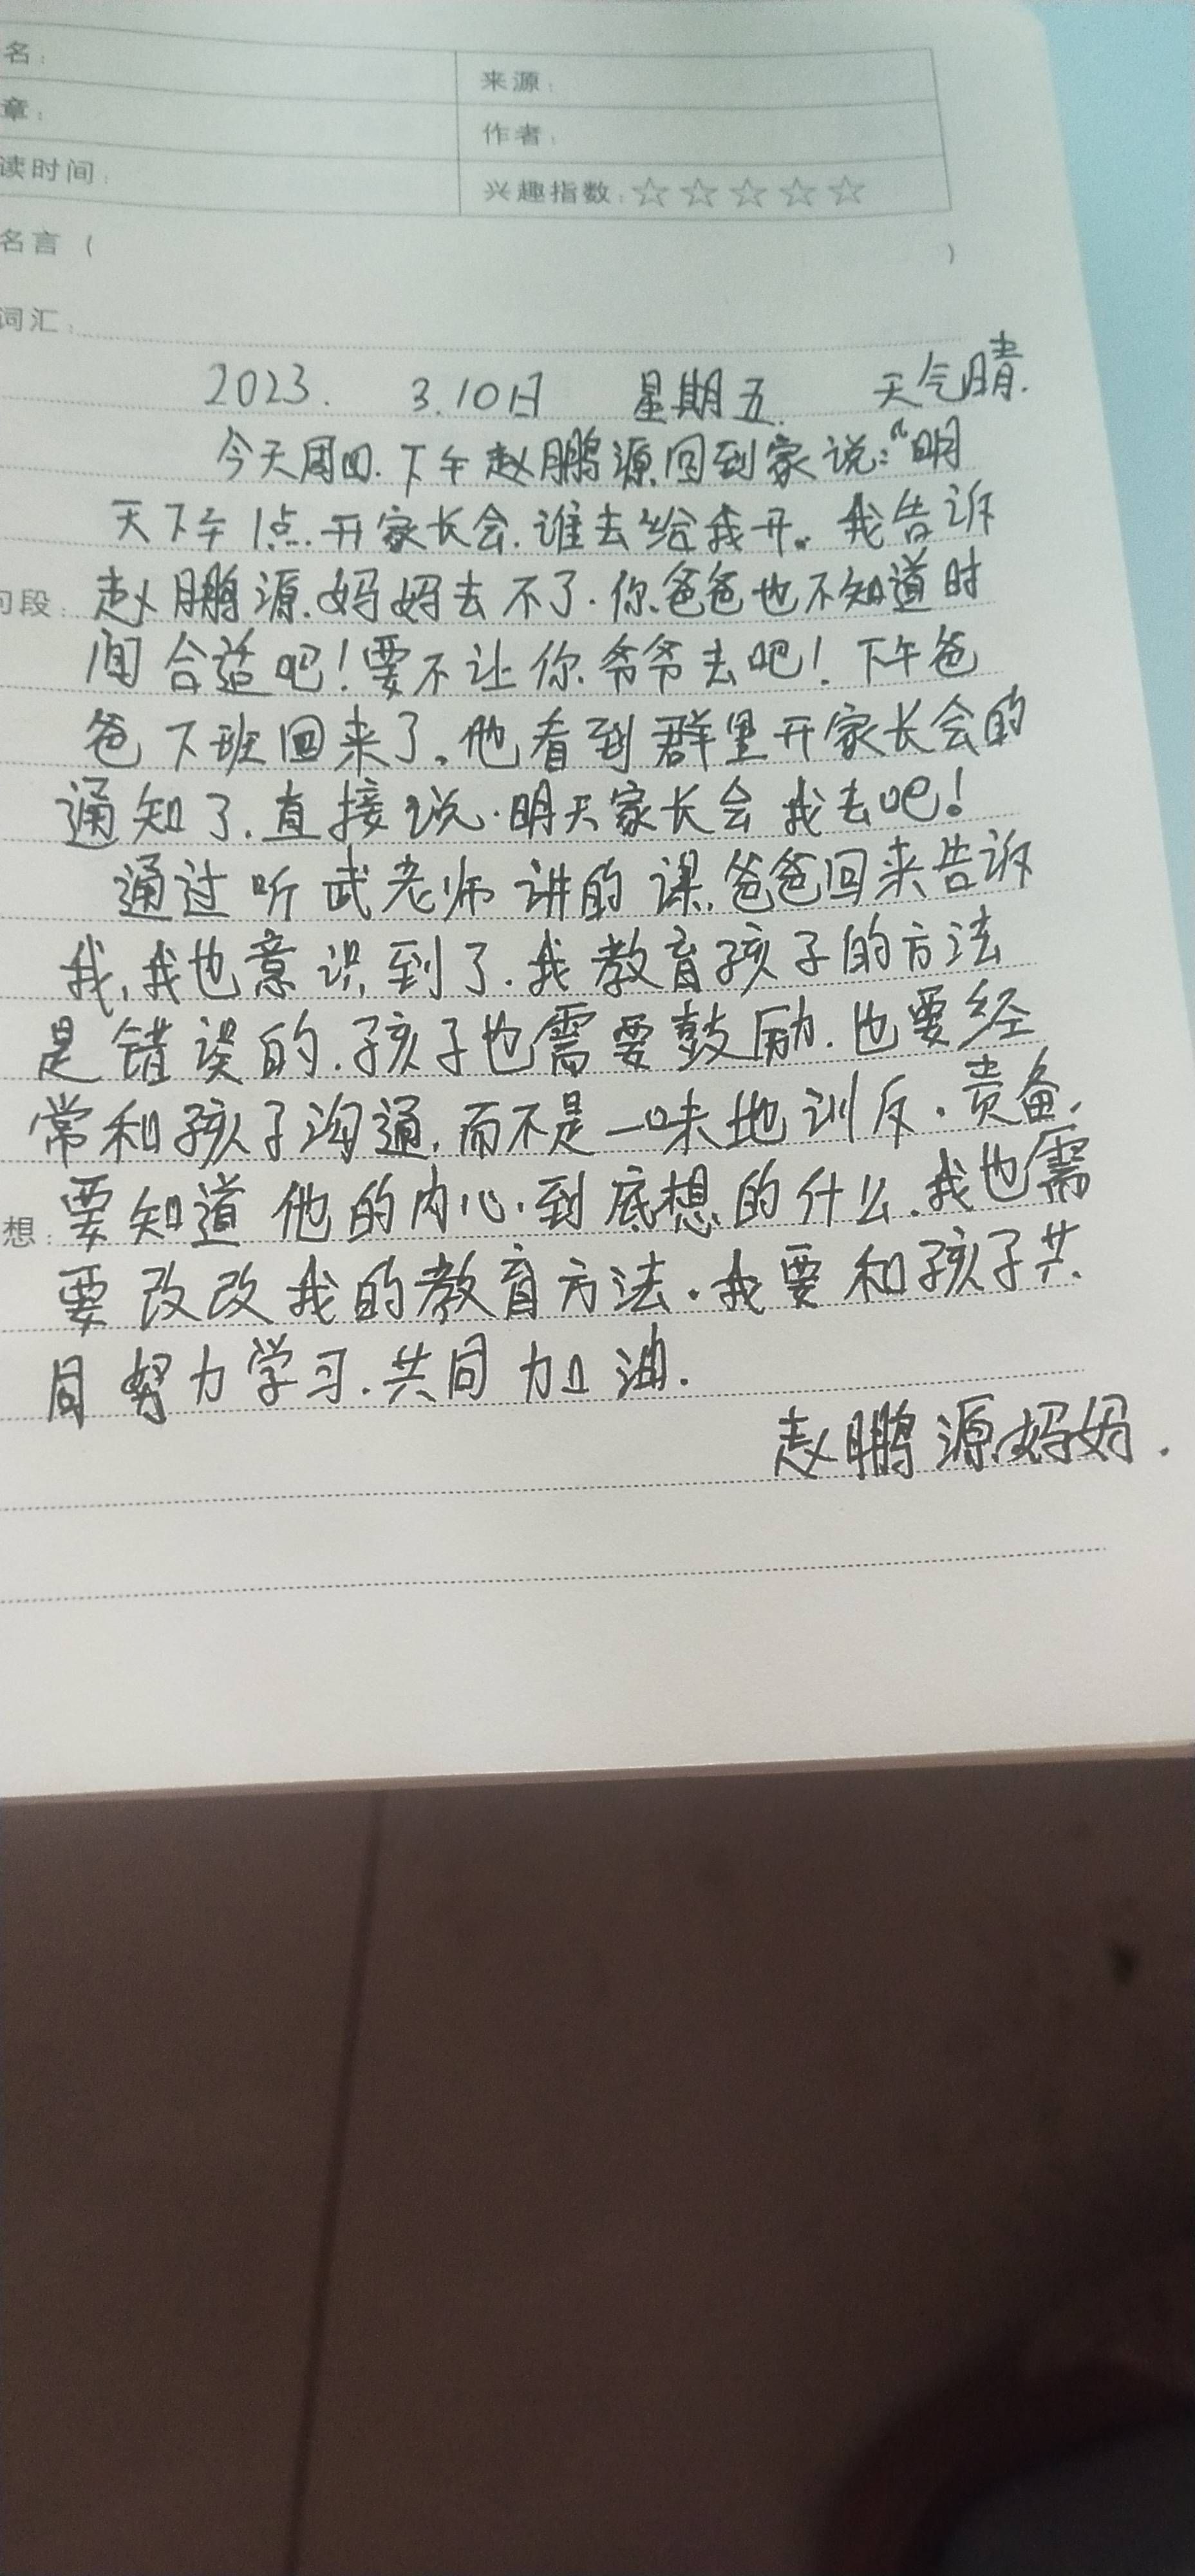 名：
来源：
章：
作者：
读时间：
兴趣指数：☆☆☆☆☆
名言（ ）
词汇：
2023. 3.10日 星期五. 天气晴.
今天周四.下午赵鹏源回到家说：“明
天下午1点.开家长会.谁去给我开。我告诉
句段：
赵鹏源.妈妈去不了.你爸爸也不知道时
间合适吧！要不让你爷爷去吧！下午爸
爸下班回来了。他看到群里开家长会的
通知了.直接说.明天家长会我去吧！
通过听武老师讲的课.爸爸回来告诉
我,我也意识到了.我教育孩子的方法
是错误的.孩子也需要鼓励.也要经
常和孩子沟通,而不是一味地训斥.责备,
想：
要知道他的内心.到底想的什么.我也需
要改改我的教育方法.我要和孩子共
同努力学习.共同加油.
赵鹏源妈妈.